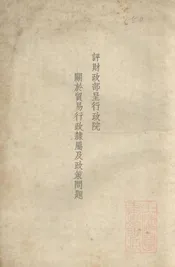 評財政部呈行政院
關於貿易行政隸屬及政策問題